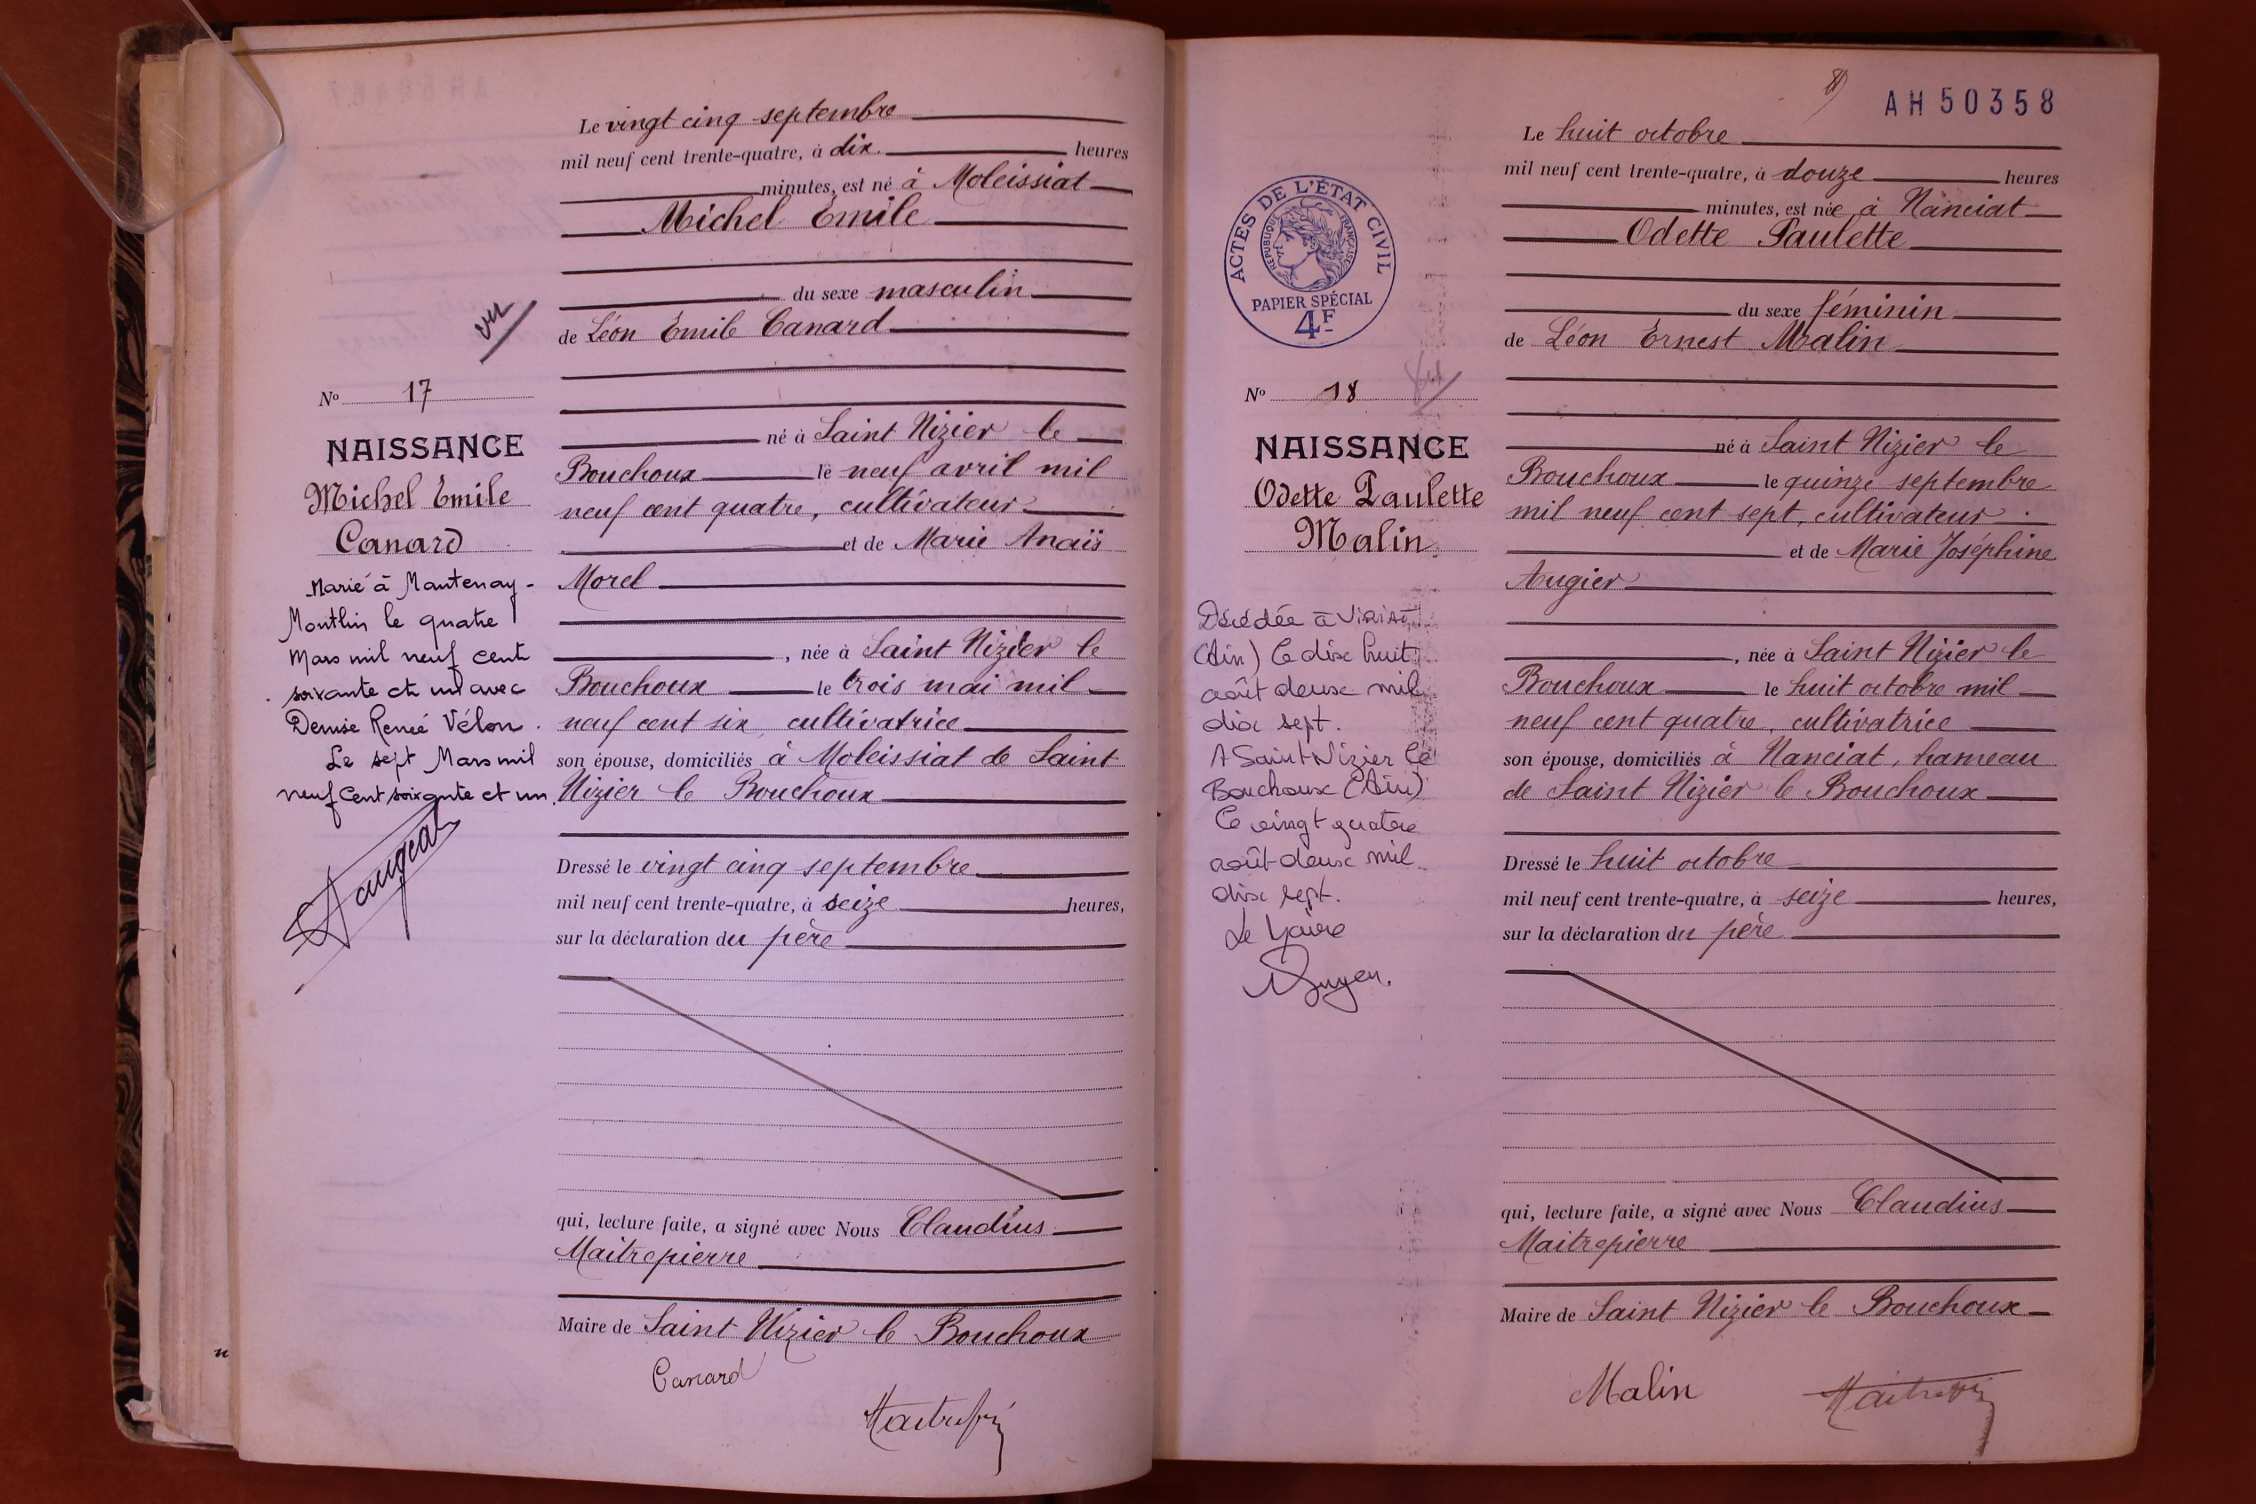 Le vingt cinq septembre
mil neuf cent trente-quatre, à dix heures
minutes, est né à Moleissiat
Michel Émile
du sexe masculin
vu
de Léon Émile Canard
No 17
NAISSANCE
Michel Emile
Canard
Marié à Mantenay-
Montlin le quatre
Mars mil neuf cent
soixante et un avec
Denise Renée Vélon.
Le sept Mars mil
neuf cent soixante et un.
né à Saint Nizier le
Bouchoux le neuf avril mil
neuf cent quatre, cultivateur
et de Marie Anaïs
Morel
, née à Saint Nizier le
Bouchoux le trois mai mil
neuf cent six, cultivatrice
son épouse, domiciliés à Moleissiat de Saint
Nizier le Bouchoux
Dressé le vingt cinq septembre
mil neuf cent trente-quatre, à seize heures,
sur la déclaration du père
qui, lecture faite, a signé avec Nous Claudius
Maitrepierre
Maire de Saint Nizier le Bouchoux
Canard
AH 50358
Le huit octobre
mil neuf cent trente-quatre, à douze heures
minutes, est née à Nanciat
Odette Paulette
du sexe féminin
de Léon Ernest Malin
ACTES DE L'ÉTAT CIVIL
RÉPUBLIQUE FRANÇAISE
PAPIER SPÉCIAL
4F
No 18
NAISSANCE
Odette Paulette
Malin
Décédée à Viriat
(Ain) le dix huit
août deux mil
dix sept.
A Saint Nizier le
Bouchoux (Ain)
le vingt quatre
août deux mil
dix sept.
Le Maire
né à Saint Nizier le
Bouchoux le quinze septembre
mil neuf cent sept, cultivateur
et de Marie Joséphine
Augier
, née à Saint Nizier le
Bouchoux le huit octobre mil
neuf cent quatre, cultivatrice
son épouse, domiciliés à Nanciat, hameau
de Saint Nizier le Bouchoux
Dressé le huit octobre
mil neuf cent trente-quatre, à seize heures,
sur la déclaration du père
qui, lecture faite, a signé avec Nous Claudius
Maitrepierre
Maire de Saint Nizier le Bouchoux
Malin